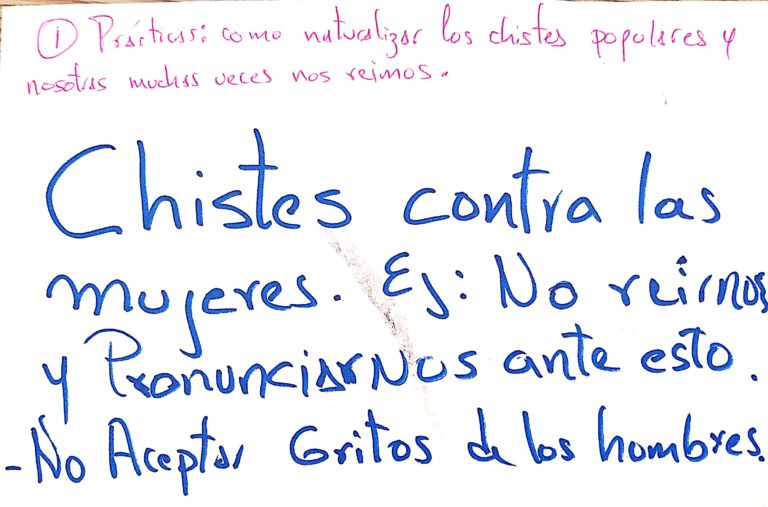 ① Prácticas: como naturalizar los chistes populares y
nosotras muchas veces nos reimos.
Chistes contra las
mujeres. Ej: No reirnos
y Pronunciarnos ante esto.
- No Aceptar Gritos de los hombres.